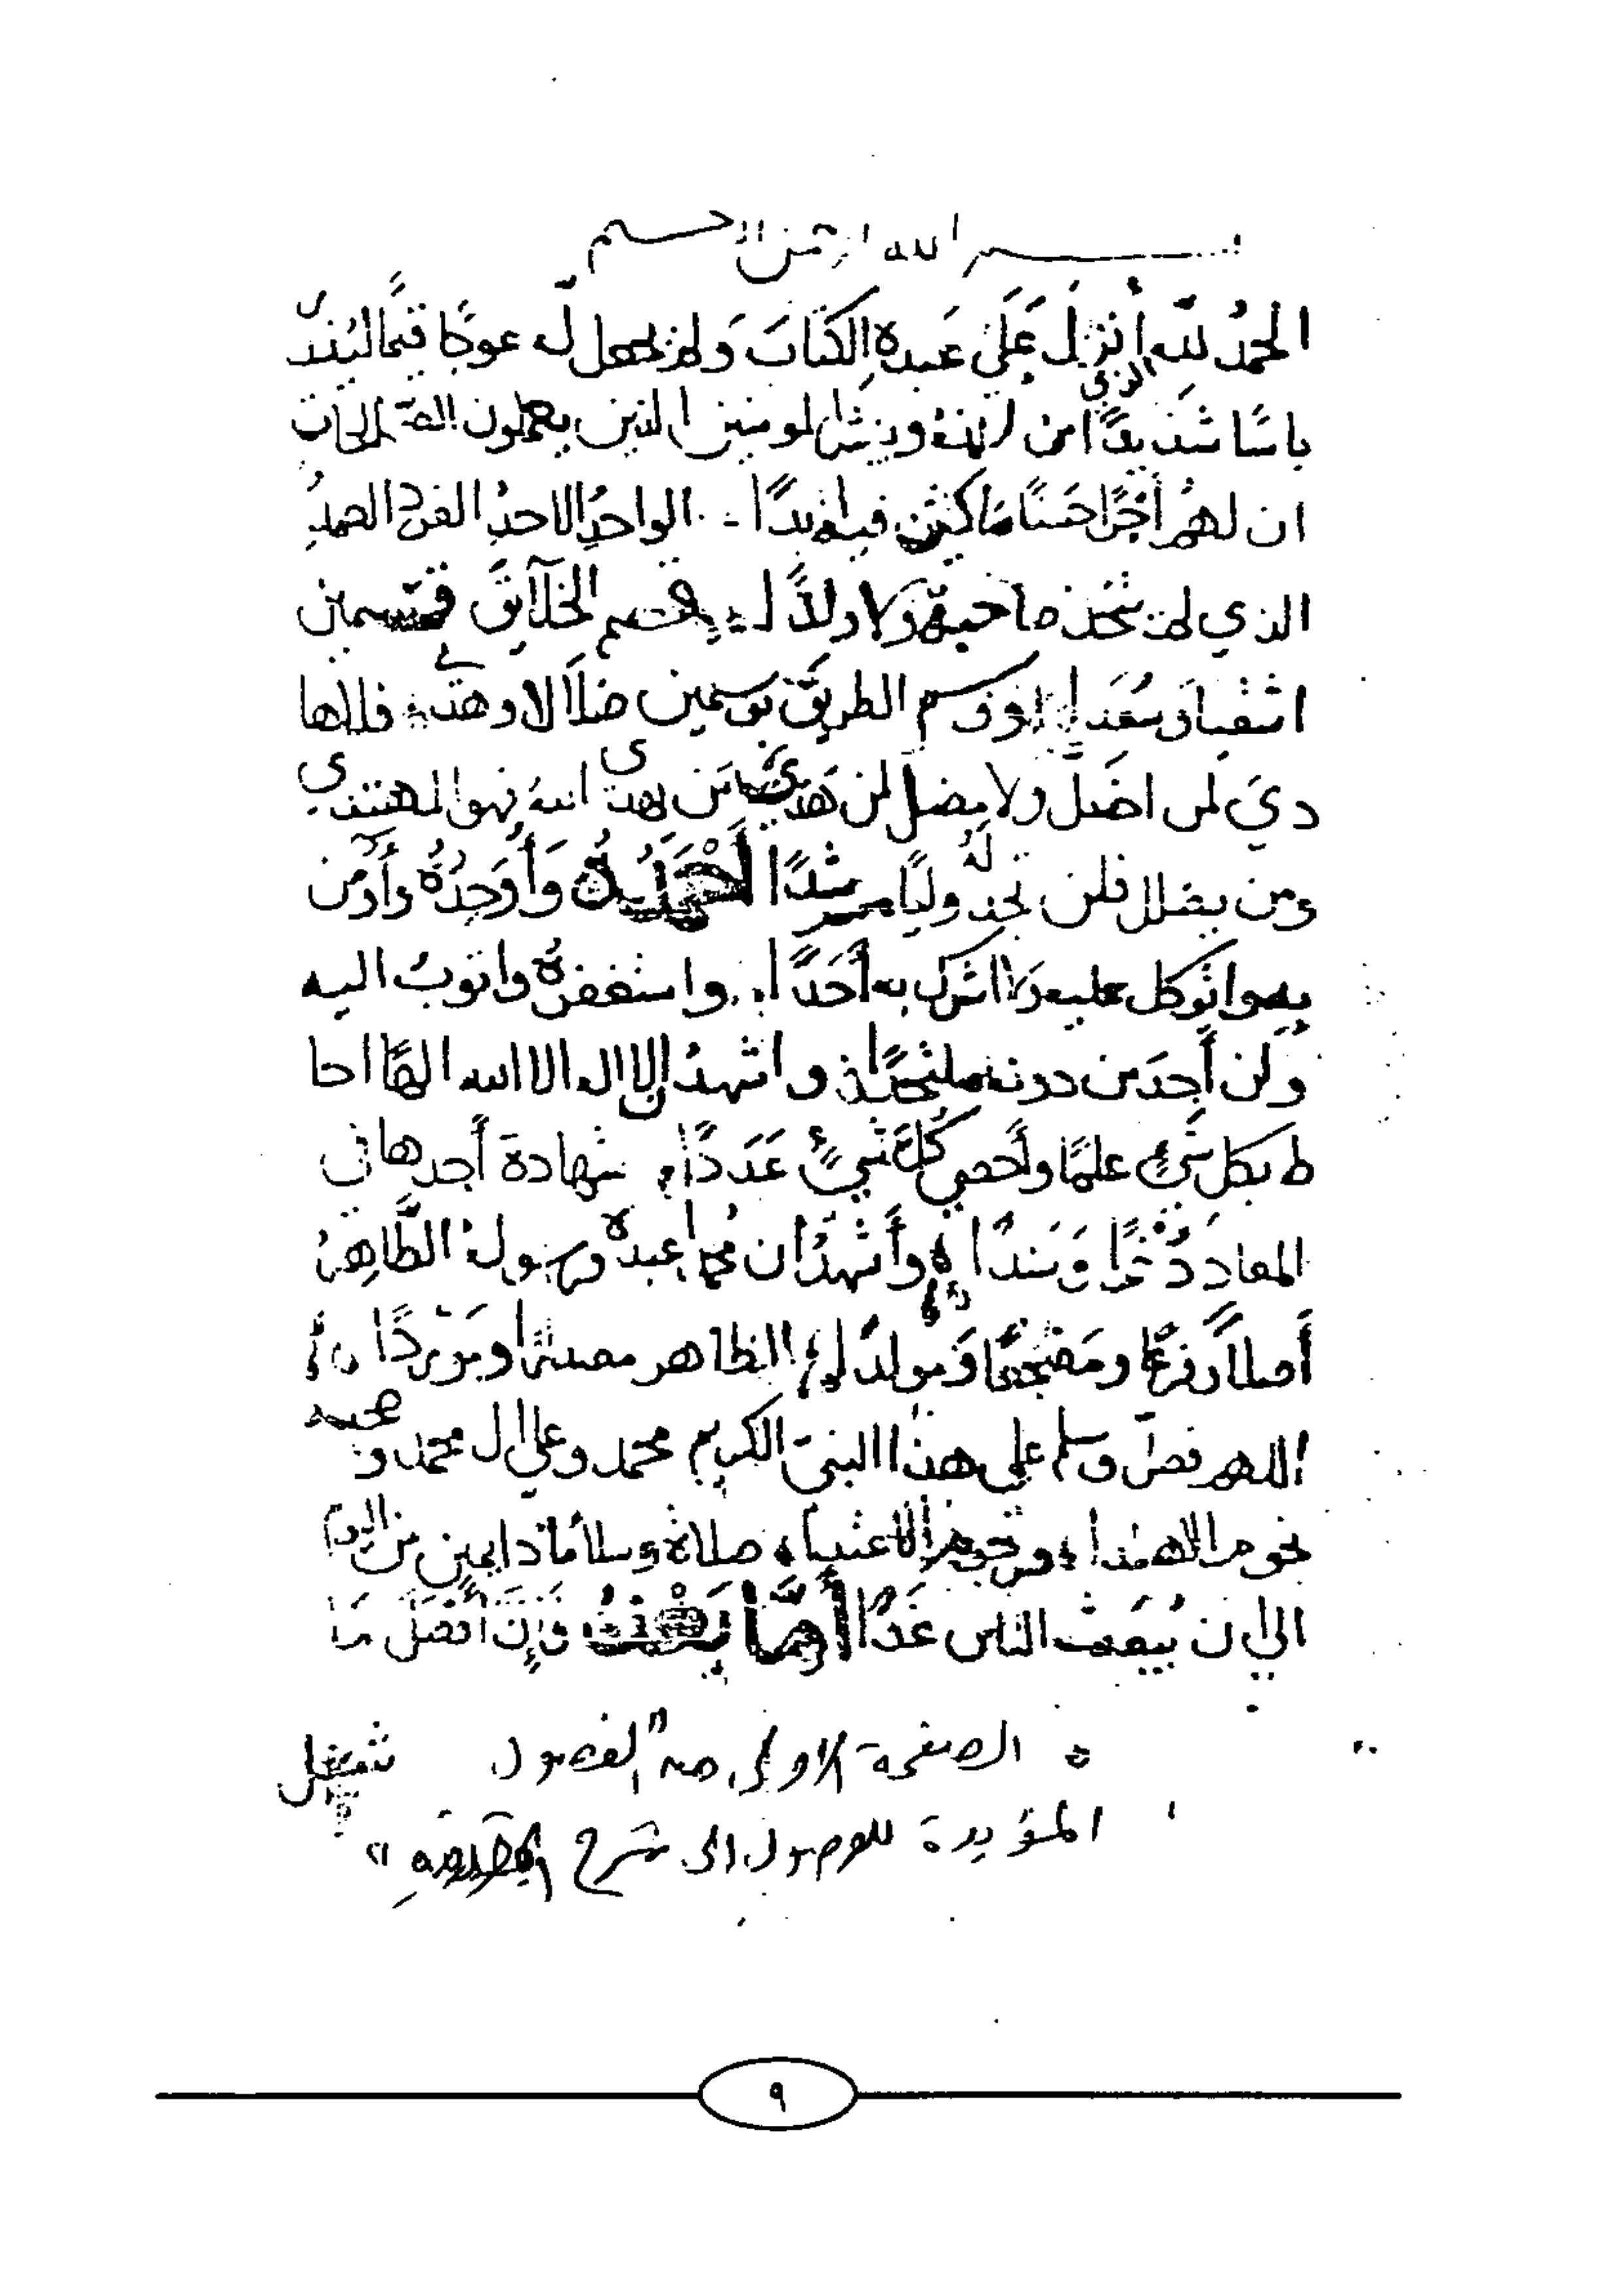 بسم الله الرحمن الرحيم
الحمدُ للّه الذي أنزل عَلَى عَبده الكتابَ وَلم يجعل له عوجًا قيمًا ليُنذر
باسًا شديدًا من لدنهُ ويبشر المومنين الذين يعملون الصالحات
ان لهمُ أجْرًا حسنًا ماكثين فيه ابدًا الواحدُ الاحدُ الفردُ الصمدُ
الذي لم يتخذ صاحبة ولا ولدًا قسم الخلآئقَ قسمين
اشقيا وسُعَدا ووسم الطريق بوسمين ضلاَلا وهدى فلاها
ديَ لمن اضَلَّ ولا مضلَّ لمن هَدى من يهدى اللهُ فهوا لمهتدي
ومن يضلل فلن تجد لَهُ وليًّا مرشدًا أَحْمَدُهُ وَأُوَحِدُهُ وأومن
به واتوكل عليه ولا اشرك به أَحَدًا واستغفرهُ واتوبُ اليه
ولن أَجدَ من دونه ملتحدًا واشهدُ ان لا اله الا الله الهًا احا
ط بكل شيءٍ علمًا وأَحصى كُلَّ شيءٍ عَدَدًا شهادةَ أجدها في
المعاد ذُخرًا وَسَندًا وأَشهدُ ان محمدا عبده ورسوله الطَّاهِرُ
أصلاً وفرعًا ومَولدًا الظاهر ومَوْردًا
اللهم فصلّ وسلم على هذا النبيّ الكريم محمد وعلى ال محمد وصحبه
نجوم الاهتدا صلاةً وسلامًا دايمين من اليوم
الى ان يُبعَث الناس غَدًا أَمَّا بَعْدُ فَإِنَّ أَفضَلَ مَا
* الصفحة الاولى من "الفصول
المؤيدة للوصول الى شرح
٩